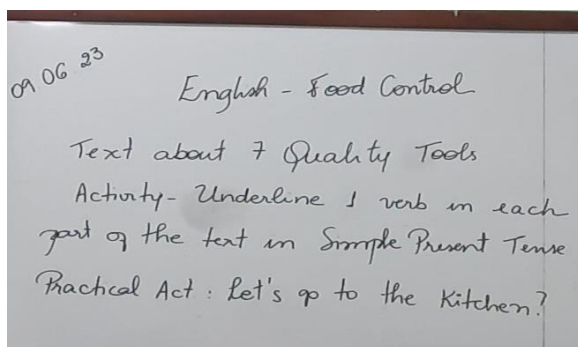 09 06 23
English - Food Control
Text about 7 Quality Tools
Activity - Underline 1 verb in each
part of the text in Simple Present Tense
Practical Act : Let's go to the Kitchen?